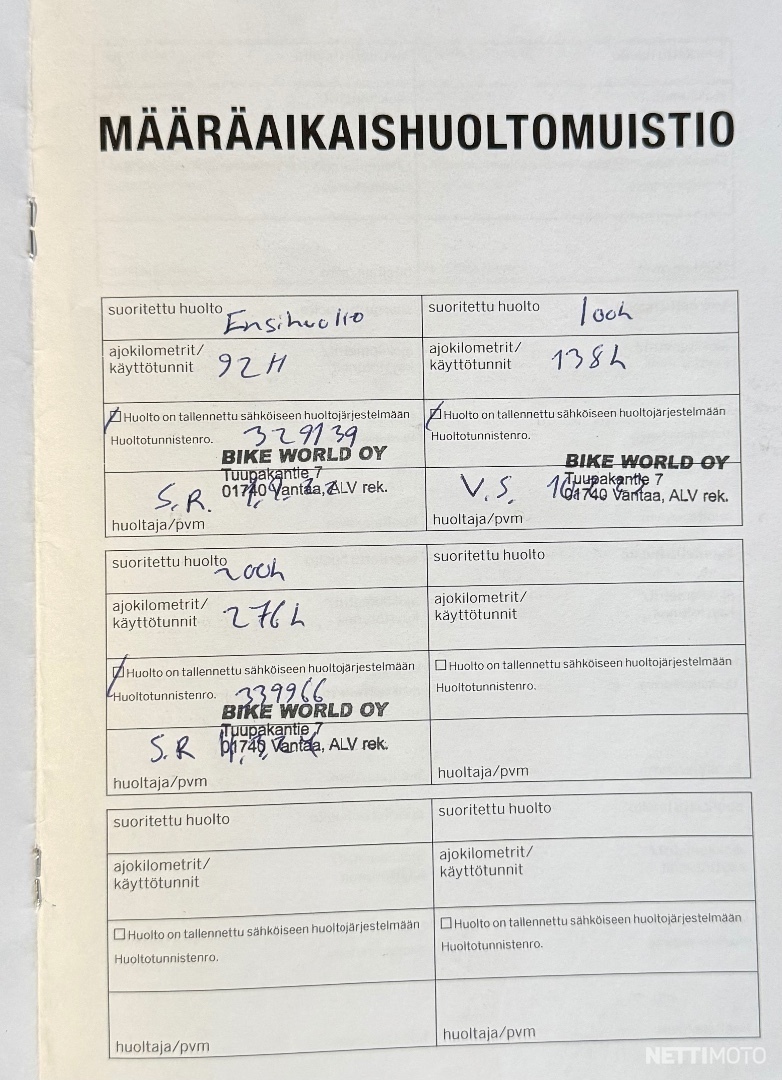 MÄÄRÄAIKAISHUOLTOMUISTIO
suoritettu huolto Ensihuolto
ajokilometrit/
käyttötunnit 92H
Huolto on tallennettu sähköiseen huoltojärjestelmään
Huoltotunnistenro. 329139
BIKE WORLD OY
Tuupakantie 7
01740 Vantaa, ALV rek.
S.R.
huoltaja/pvm
suoritettu huolto 100h
ajokilometrit/
käyttötunnit 138h
Huolto on tallennettu sähköiseen huoltojärjestelmään
Huoltotunnistenro.
BIKE WORLD OY
Tuupakantie 7
01740 Vantaa, ALV rek.
V.S.
huoltaja/pvm
suoritettu huolto 200h
ajokilometrit/
käyttötunnit 276h
Huolto on tallennettu sähköiseen huoltojärjestelmään
Huoltotunnistenro. 339966
BIKE WORLD OY
Tuupakantie 7
01740 Vantaa, ALV rek.
S.R
huoltaja/pvm
suoritettu huolto
ajokilometrit/
käyttötunnit
Huolto on tallennettu sähköiseen huoltojärjestelmään
Huoltotunnistenro.
huoltaja/pvm
suoritettu huolto
ajokilometrit/
käyttötunnit
Huolto on tallennettu sähköiseen huoltojärjestelmään
Huoltotunnistenro.
huoltaja/pvm
suoritettu huolto
ajokilometrit/
käyttötunnit
Huolto on tallennettu sähköiseen huoltojärjestelmään
Huoltotunnistenro.
huoltaja/pvm
NETTIMOTO